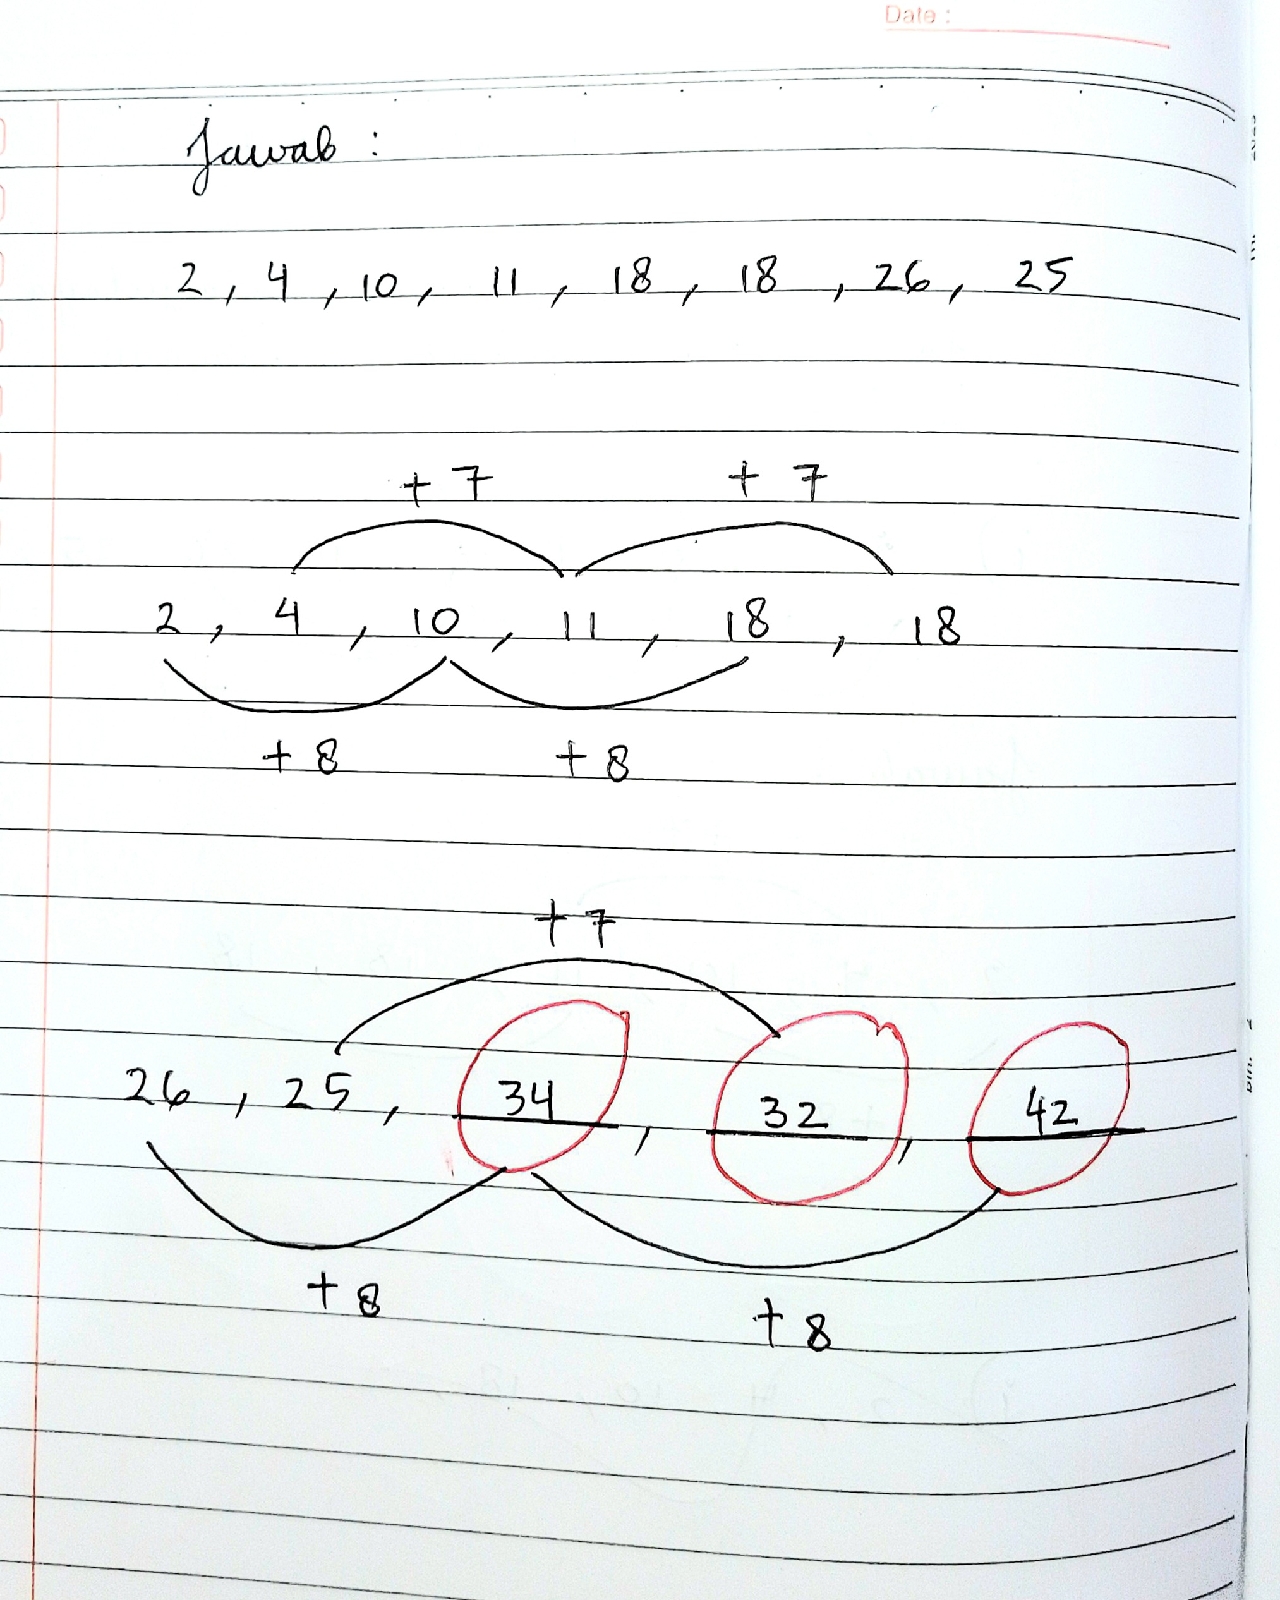 Date :
Jawab :
2 , 4 , 10 , 11 , 18 , 18 , 26 , 25
+ 7 + 7
2 , 4 , 10 , 11 , 18 , 18
+ 8 + 8
+ 7
26 , 25 , 34 , 32 , 42
+ 8
+ 8